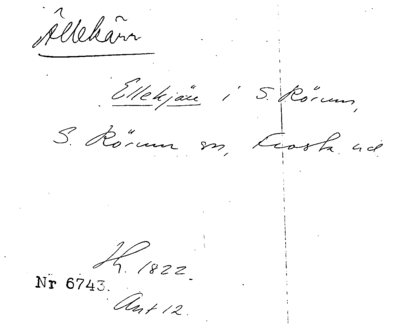 Ällekärr
Ellekjär i S. Rörum,
S. Rörum sn, Frosta hd
Hf. 1822.
Nr 6743.
Avs 12.